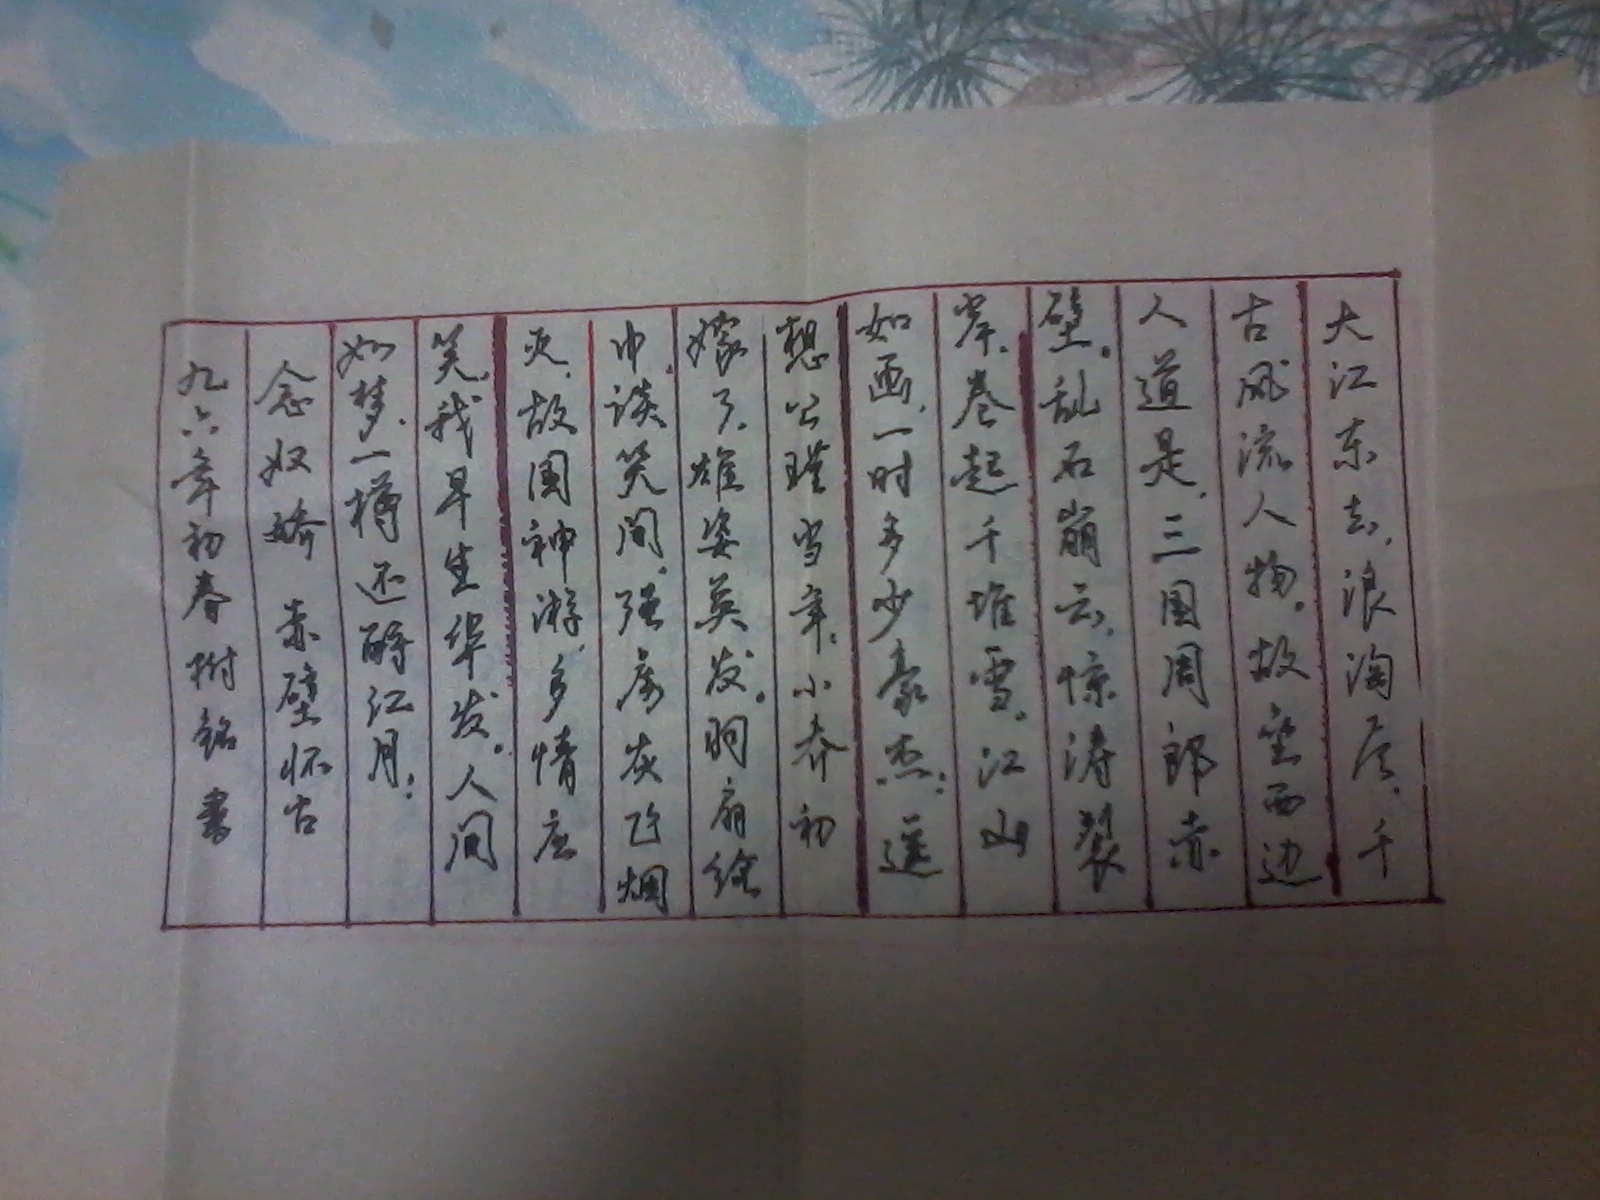 大江东去，浪淘尽，千
古风流人物。故垒西边
人道是，三国周郎赤
壁。乱石崩云，惊涛裂
岸，卷起千堆雪。江山
如画，一时多少豪杰；遥
想公瑾当年；小乔初
嫁了，雄姿英发。羽扇纶
巾，谈笑间，强虏灰飞烟
灭，故国神游，多情应
笑，我早生华发。人间
如梦，一樽还酹江月；
念奴娇 赤壁怀古
九六年初春树铭书